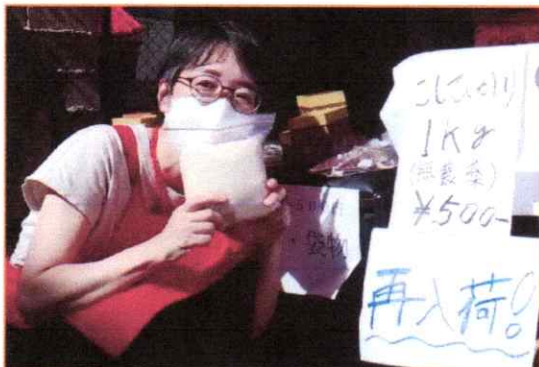 こしひかり
1kg
(無農薬)
¥500-
再入荷!!
・袋物